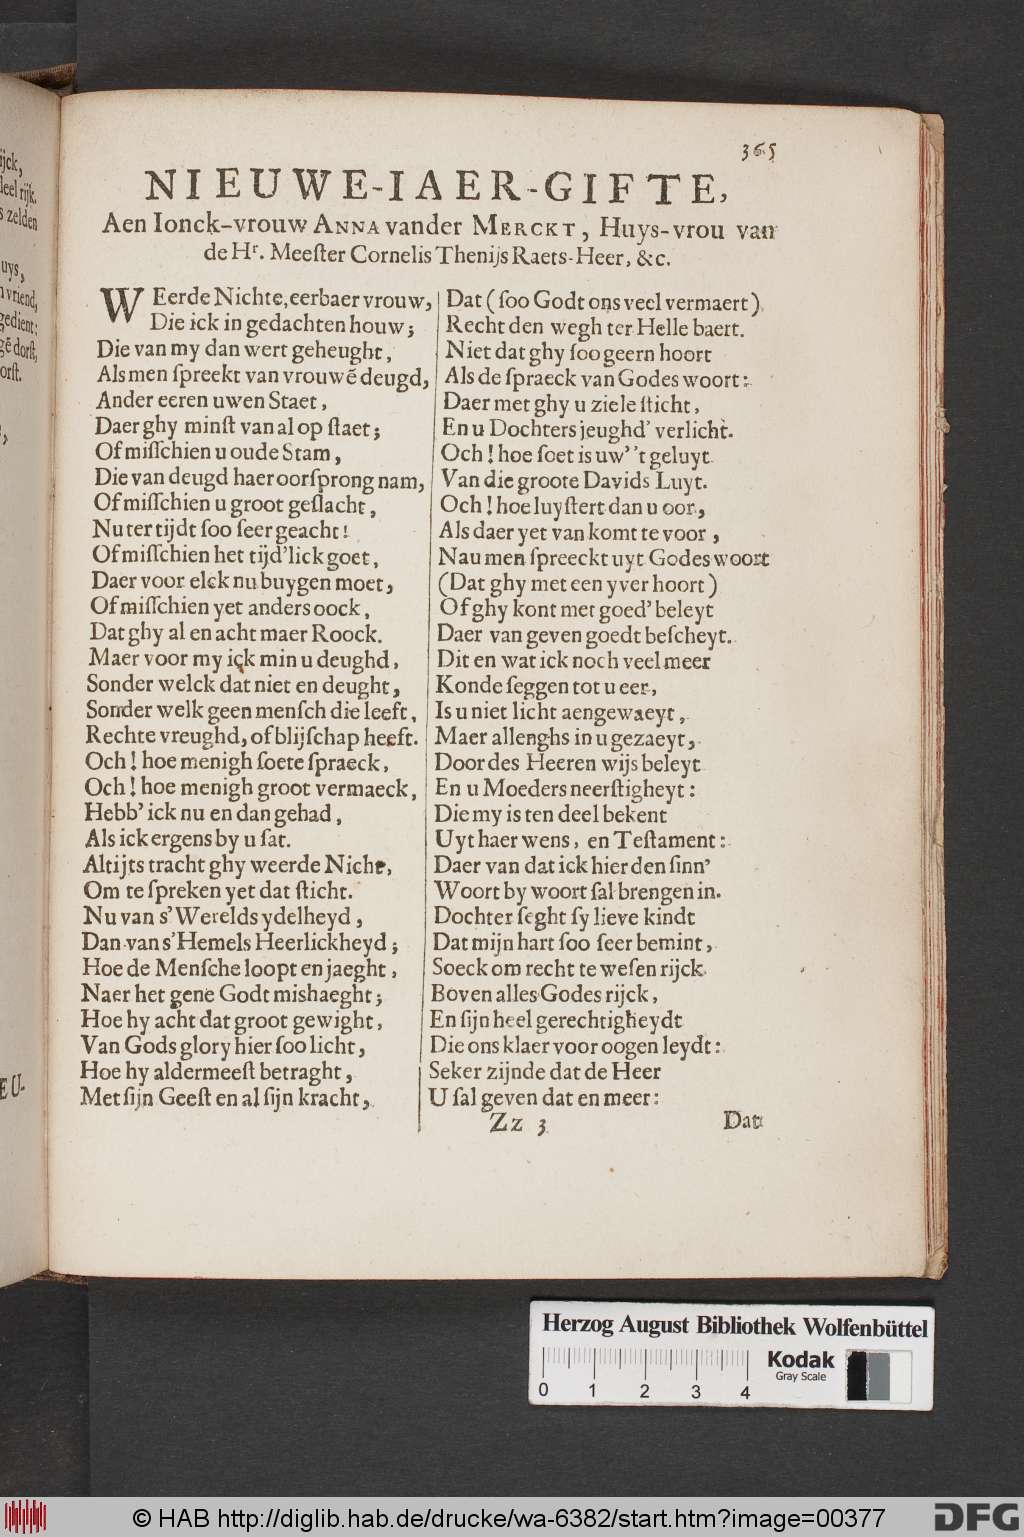 365
NIEUWE-IAER-GIFTE,
Aen Ionck-vrouw ANNA vander MERCKT, Huys-vrou van
de Hr. Meeſter Cornelis Thenijs Raets-Heer, &c.
WEerde Nichte, eerbaer vrouw,
Die ick in gedachten houw;
Die van my dan wert geheught,
Als men ſpreekt van vrouwē deugd,
Ander eeren uwen Staet,
Daer ghy minſt van al op ſtaet;
Of miſſchien u oude Stam,
Die van deugd haer oorſprong nam,
Of miſſchien u groot geſlacht,
Nu ter tijdt ſoo ſeer geacht!
Of miſſchien het tijd'lick goet,
Daer voor elck nu buygen moet,
Of miſſchien yet anders oock,
Dat ghy al en acht maer Roock.
Maer voor my ick min u deughd,
Sonder welck dat niet en deught,
Sonder welk geen menſch die leeft,
Rechte vreughd, of blijſchap heeft.
Och! hoe menigh ſoete ſpraeck,
Och! hoe menigh groot vermaeck,
Hebb' ick nu en dan gehad,
Als ick ergens by u ſat.
Altijts tracht ghy weerde Nicht,
Om te ſpreken yet dat ſticht.
Nu van s'Werelds ydelheyd,
Dan van s'Hemels Heerlickheyd;
Hoe de Menſche loopt en jaeght,
Naer het gene Godt mishaeght;
Hoe hy acht dat groot gewight,
Van Gods glory hier ſoo licht,
Hoe hy aldermeeſt betraght,
Met ſijn Geeſt en al ſijn kracht,
Dat (ſoo Godt ons veel vermaert)
Recht den wegh ter Helle baert.
Niet dat ghy ſoo geern hoort
Als de ſpraeck van Godes woort:
Daer met ghy u ziele ſticht,
En u Dochters jeughd' verlicht.
Och! hoe ſoet is uw' 't geluyt
Van die groote Davids Luyt.
Och! hoe luyſtert dan u oor,
Als daer yet van komt te voor,
Nau men ſpreeckt uyt Godes woort
(Dat ghy met een yver hoort)
Of ghy kont met goed' beleyt
Daer van geven goedt beſcheyt.
Dit en wat ick noch veel meer
Konde ſeggen tot u eer,
Is u niet licht aengewaeyt,
Maer allenghs in u gezaeyt,
Door des Heeren wijs beleyt
En u Moeders neerſtigheyt:
Die my is ten deel bekent
Uyt haer wens, en Teſtament:
Daer van dat ick hier den ſinn'
Woort by woort ſal brengen in.
Dochter ſeght ſy lieve kindt
Dat mijn hart ſoo ſeer bemint,
Soeck om recht te weſen rijck
Boven alles Godes rijck,
En ſijn heel gerechtigheydt
Die ons klaer voor oogen leydt:
Seker zijnde dat de Heer
U ſal geven dat en meer:
Zz 3
Dat
ijck,
deel rijk.
s zelden
uys,
n vriend,
gedient:
gē dorſt,
orſt.
EU-
Herzog August Bibliothek Wolfenbüttel
Kodak
Gray Scale
0 1 2 3 4
© HAB http://diglib.hab.de/drucke/wa-6382/start.htm?image=00377
DFG